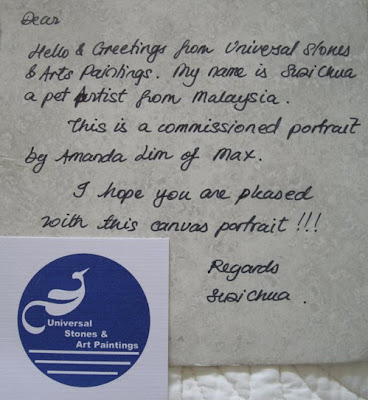 Dear
Hello & Greetings from Universal Stones
& Arts Paintings. My name is Suzi Chua
a pet Artist from Malaysia.
This is a commissioned portrait
by Amanda Lim of Max.
I hope you are pleased
with this canvas portrait !!!
Regards
Suzi Chua.
Universal
Stones &
Art Paintings